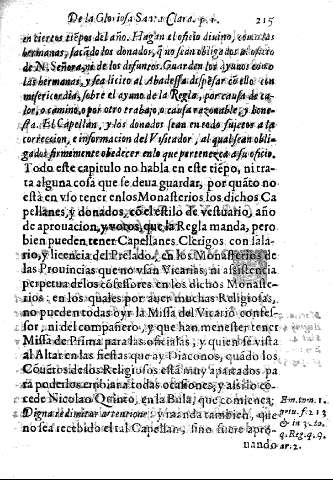 De la Gloriosa Santa Clara. p. 1. 215
en ciertos tiẽpos del año. Hagan el oficio divino, con las
hermanas, sacãdo los donados, q̃ no sean obligados al oficio
de N. Señora, ni de los difuntos. Guarden los ayunos como
las hermanas, y sea licito al Abadessa dispẽsar cõ ellos con
misericordia, sobre el ayuno de la Regla, por causa de ca-
lor, o camino, o por otro trabajo, o causa razonable, y hone-
sta. El Capellan, y los donados sean en todo sujetos a la
correccion, e informacion del Visitador, al qual sean obli-
gados firmimente obedecer en lo que pertenezca a su oficio.
Todo este capitulo no habla en este tiẽpo, ni tra-
ta alguna cosa que se deua guardar, por quãto no
està en vso tener en los Monasterios los dichos Ca
pellanes, y donados, cõ el estilo de vestuario, año
de aprouacion, y votos, que la Regla manda, pero
bien pueden tener Capellanes Clerigos con sala-
rio, y licencia del Prelado, en los Monasterios de
las Prouincias que no vsan Vicarias, ni assistencia
perpetua de los cõfessores en los dichos Monaste-
rios: en los quales por auer muchas Religiosas,
no pueden todas oyr la Missa del Vicario confes-
sor, ni del compañero, y que han menester tener
Missa de Prima para las oficialas, y quien se vista
al Altar en las fiestas que ay Diaconos, quãdo los
Cõuẽtos de los Religiosos està muy apartados pa
ra poderlos embiar a todas ocasiones, y assi lo cõ-
cede Nicolao Quinto, en la Bula, que comiença;
Digna reddimur attentione: y manda tambien, que
no sea recebido el tal Capellan, sino fuere apro-
uando
Em. tom. 1.
priu. f. 213
& in 3. to.
q. Reg. q. 9.
ar. 2.